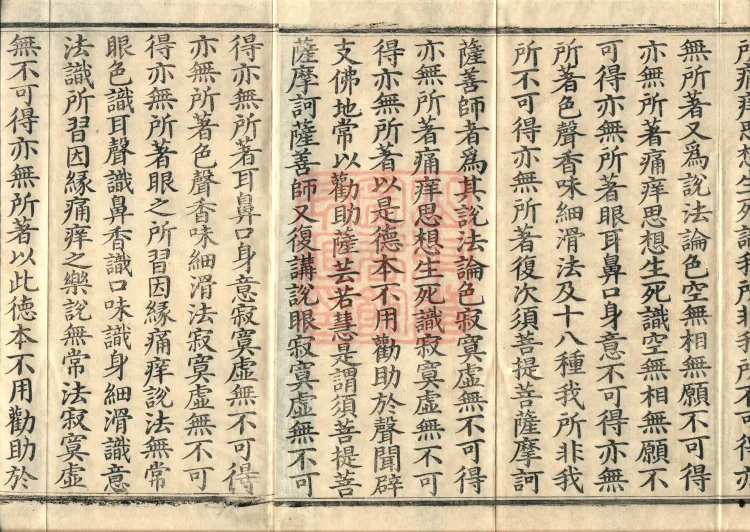 無所著又爲說法論色空無相無願不可得
亦無所著痛痒思想生死識空無相無願不
可得亦無所著眼耳鼻口身意不可得亦無
所著色聲香味細滑法及十八種我所非我
所不可得亦無所著復次須菩提菩薩摩訶
薩善師者爲其說法論色寂寞虛無不可得
亦無所著痛痒思想生死識寂寞虛無不可
得亦無所著以是德本不用勸助於聲聞辟
支佛地常以勸助薩芸若慧是謂須菩提菩
薩摩訶薩善師又復講說眼寂寞虛無不可
得亦無所著耳鼻口身意寂寞虛無不可得
亦無所著色聲香味細滑法寂寞虛無不可
得亦無所著眼之所習因緣痛痒說法無常
眼色識耳聲識鼻香識口味識身細滑識意
法識所習因緣痛痒之樂說無常法寂寞虛
無不可得亦無所著以此德本不用勸助於